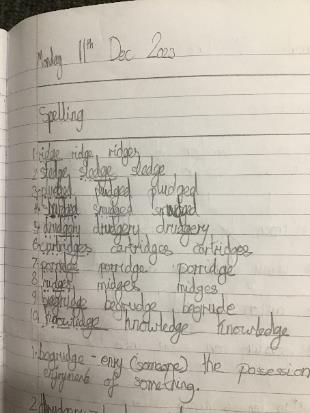 Monday 11th Dec 2023
Spelling
1. ridge ridge ridges
2. sledge sledge sledge
3. pludged pludged pludged
4. smudged smudged
5. drudgery drudgery drudgery
6. cartridges cartridges cartridges
7. porridge porridge porridge
8. midges midges midges
9. begrudge begrudge begrude
10. knowledge knowledge knowledge
1. begrudge - envy (someone) the possession
enjoyment of something.
2.